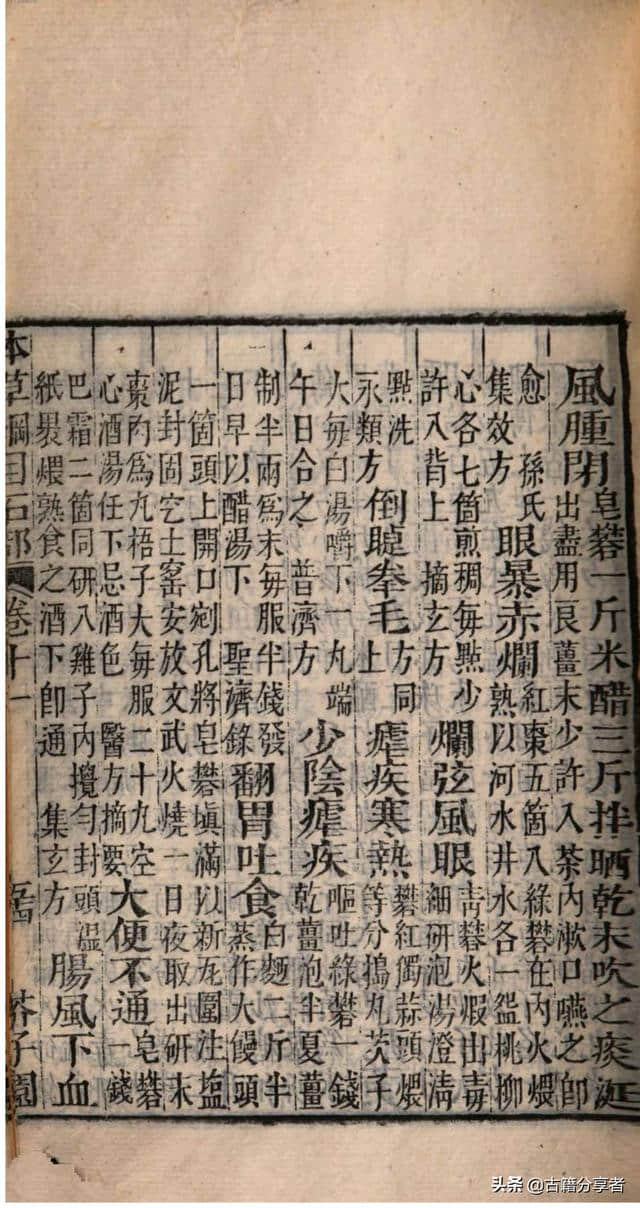 風腫閉皂礬一斤米醋三斤拌晒乾末吹之痰涎
出盡用良薑末少許入茶內漱口嚥之即
愈 孫氏
集效方
眼暴赤爛
紅棗五箇入綠礬在內火煨
熟以河水井水各一盌桃柳
心各七箇煎稠每點少
許入背上 摘玄方
爛弦風眼
青礬火煅出毒
細研泡湯澄清
點洗
永類方
倒睫拳毛
方同
上
瘧疾寒熱
礬紅獨蒜頭煨
等分搗丸芡子
大每白湯嚼下一丸端
午日合之 普濟方
少陰瘧疾
嘔吐綠礬一錢
乾薑泡半夏薑
制半兩爲末每服半錢發
日早以醋湯下 聖濟錄
翻胃吐食
白麵二斤半
蒸作大饅頭
一箇頭上開口剜孔將皂礬填滿以新瓦圍注鹽
泥封固穵土窑安放文武火燒一日夜取出研末
棗肉爲丸梧子大每服二十丸空
心酒湯任下忌酒色 醫方摘要
大便不通
皂礬
一錢
巴霜二箇同研入雞子內攪勻封頭濕
紙裹煨熟食之酒下即通 集玄方
腸風下血
本草綱目石部 卷十一 芥子園
头条 @古籍分享者